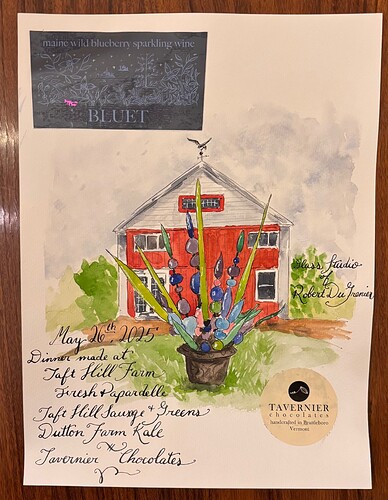 maine wild blueberry sparkling wine
BLUET
Glass Studio
of
Robert DuGrenier
May 26th 2025
Dinner made at
Taft Hill Farm
Fresh Papardelle
Taft Hill Sausage & Greens
Dutton Farm Kale
Tavernier Chocolates
TAVERNIER
chocolates
handcrafted in Brattleboro
Vermont